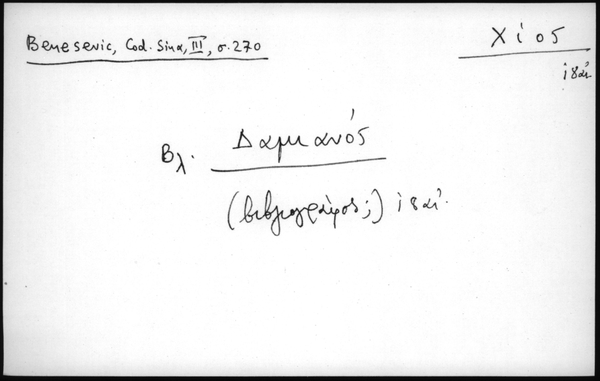 Benesevic, Cod. Sina, III, σ. 270
Χίος
ιζ αἰ.
Βλ. Δαμιανός
(βιβλιογράφος;) ιζ αἰ.